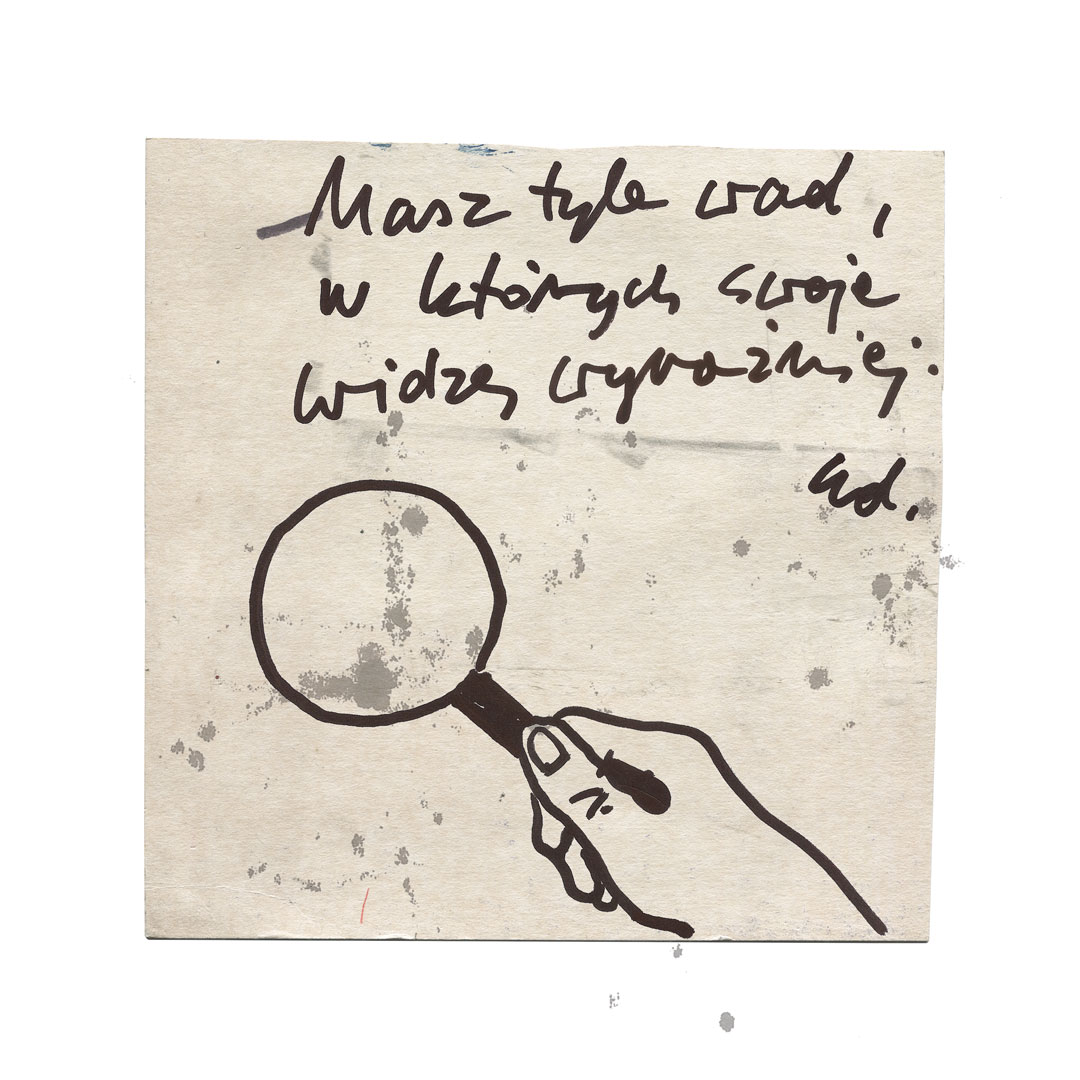 Masz tyle wad,
w których swoje
widzę wyraźniej.